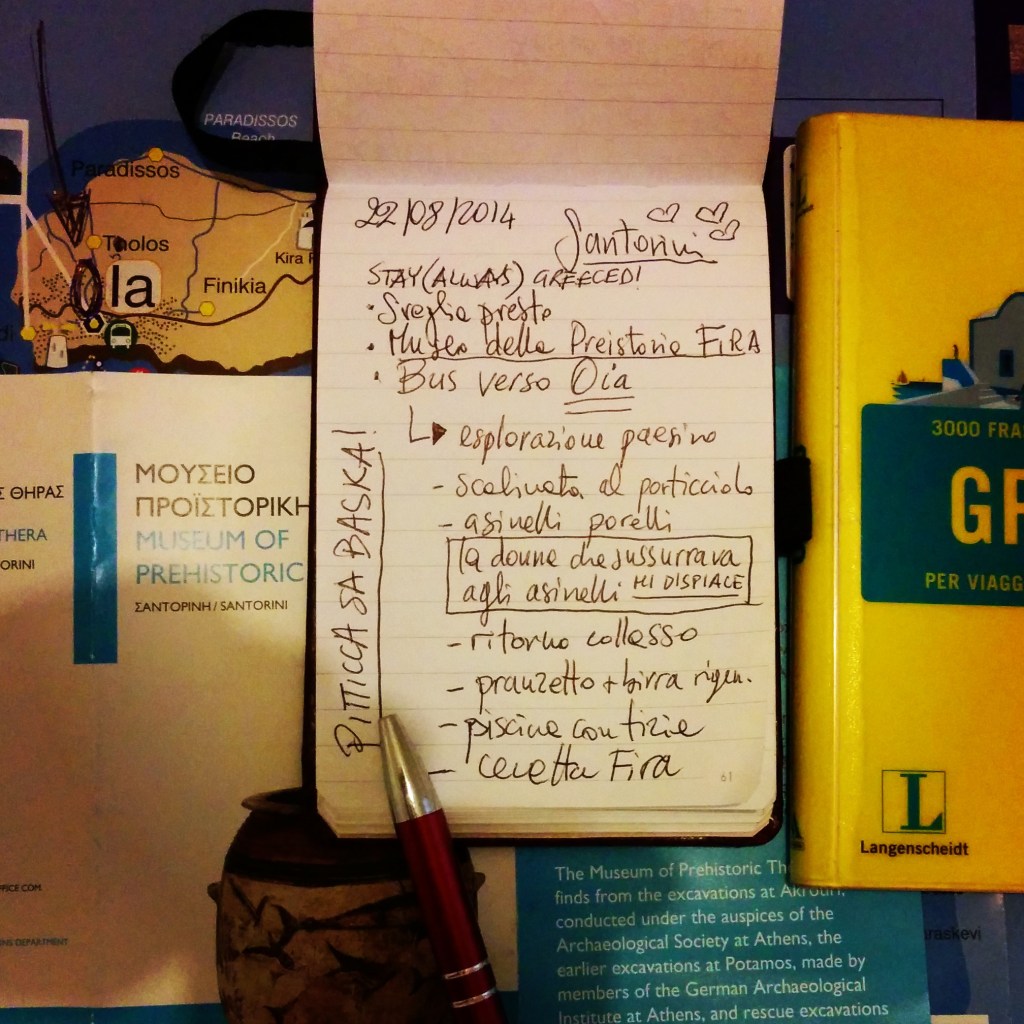 PARADISSOS
Beach
Paradissos
Tholos
Kira
Ia
Finikia
ΘΗΡΑΣ
THERA
ORINI
ΜΟΥΣΕΙΟ
ΠΡΟΪΣΤΟΡΙΚΗ
MUSEUM OF
PREHISTORIC
ΣΑΝΤΟΡΙΝΗ / SANTORINI
22/08/2014
Santorini
STAY (ALWAYS) GREECED!
• Sveglia presto
• Museo della Preistoria FIRA
• Bus verso Oia
esplorazione paesino
- scalinata al porticciolo
- asinelli porelli
la donna che sussurrava
agli asinelli MI DISPIACE
- ritorno collasso
- pranzetto + birra rigen.
- piscina con tizie
- cenetta Fira
PITTICCA SA BASKA!
61
3000 FRA
GR
PER VIAGG
L
Langenscheidt
FFICE.COM
NS DEPARTMENT
The Museum of Prehistoric Th
finds from the excavations at Akrotiri,
conducted under the auspices of the
Archaeological Society at Athens, the
earlier excavations at Potamos, made by
members of the German Archaeological
Institute at Athens, and rescue excavations
araskevi